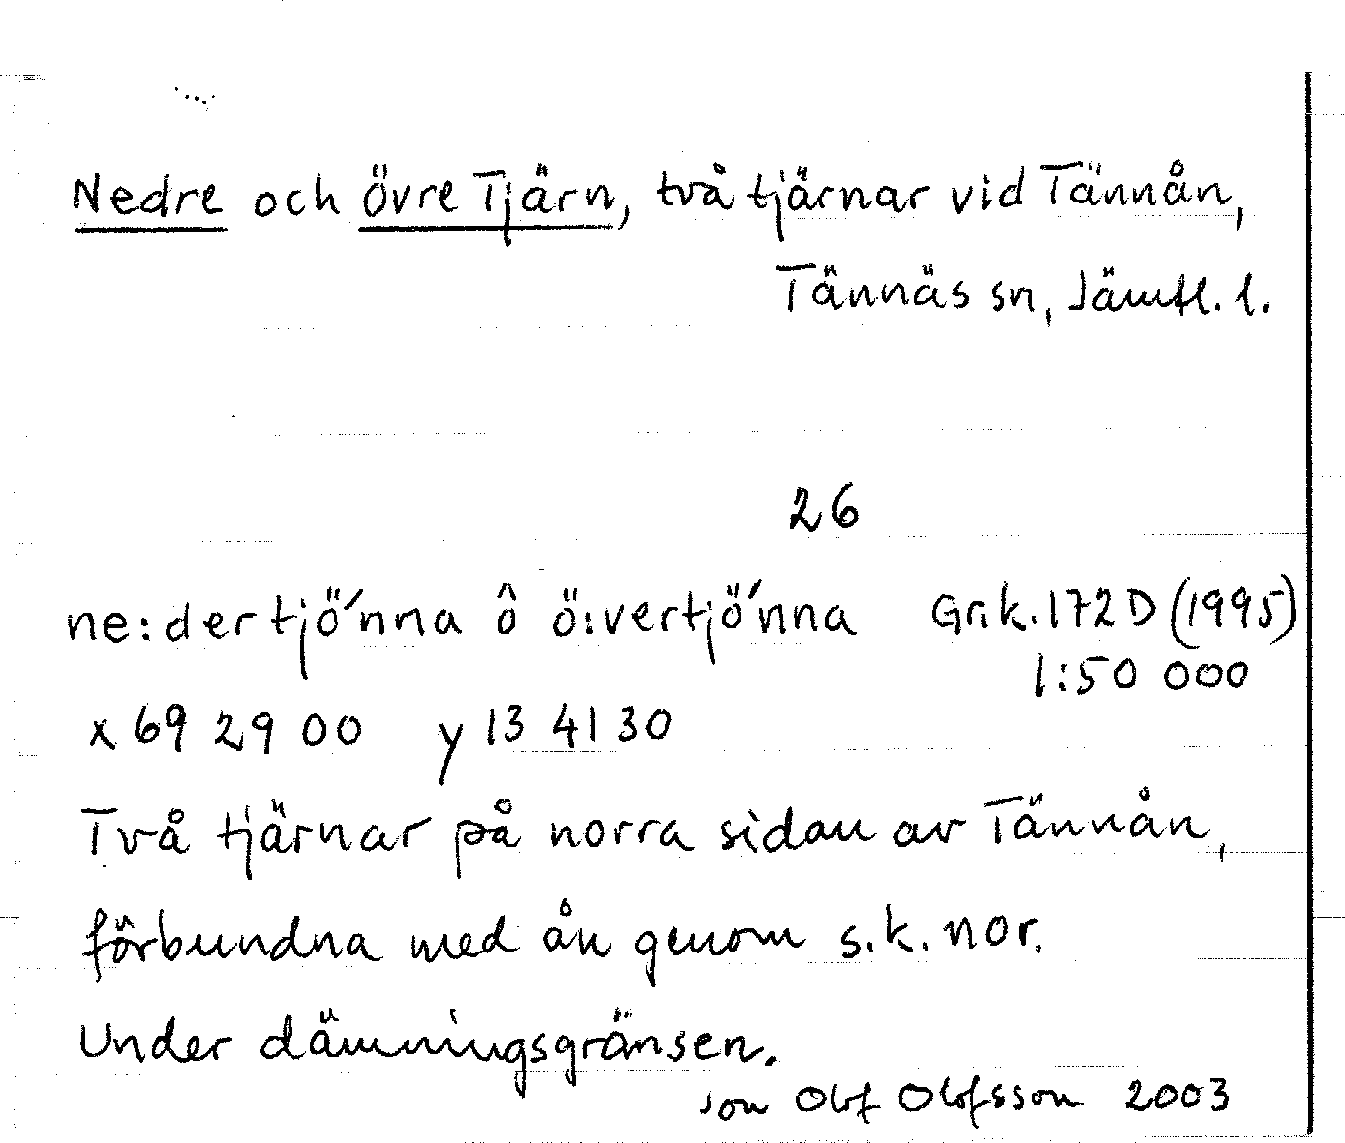 Nedre och övre Tjärn, två tjärnar vid Tännån,
Tännäs sn, Jämtl. l.
26
ne:dertjö´nna ô ö:vertjö´nna Gr.k. 172D (1995)
1:50 000
x 69 29 00 y 13 41 30
Två tjärnar på norra sidan av Tännån,
förbundna med ån genom s.k. nor.
Under dämningsgränsen.
Jon Olof Olofsson 2003